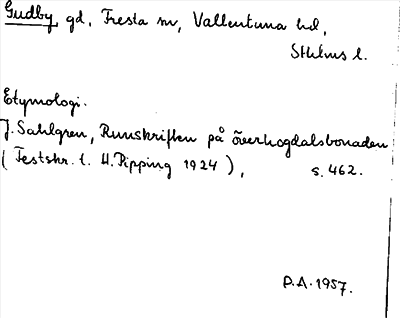 Gudby, gd, Fresta sn, Vallentuna hd,
Sthlms l.
Etymologi.
J. Sahlgren, Runskriften på överhogdalsbonaden
(Festskr. t. H. Pipping 1924), s. 462.
P.A. 1957.